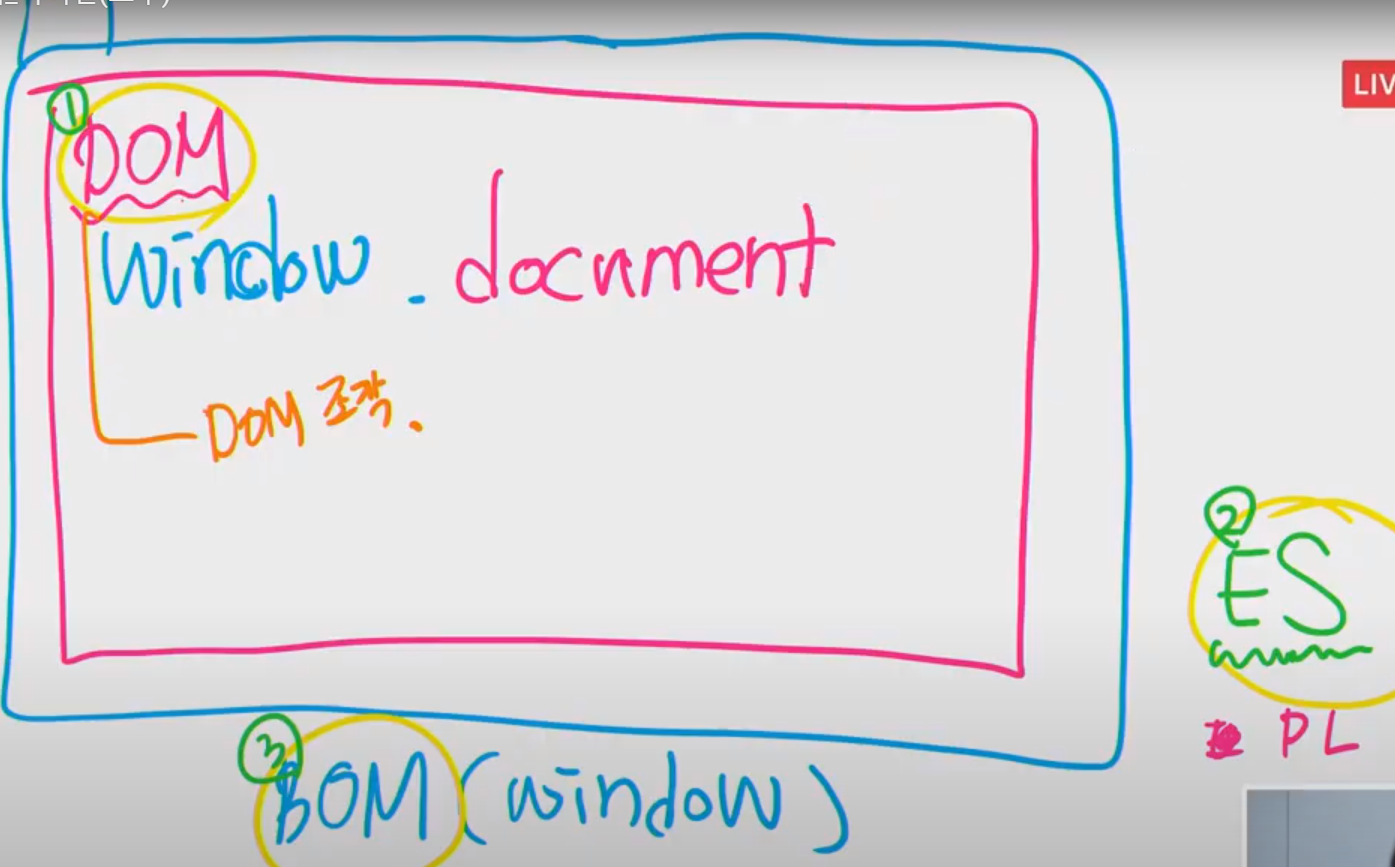 LIV
① DOM
window . document
DOM 조작.
② ES
PL
③ BOM (window)